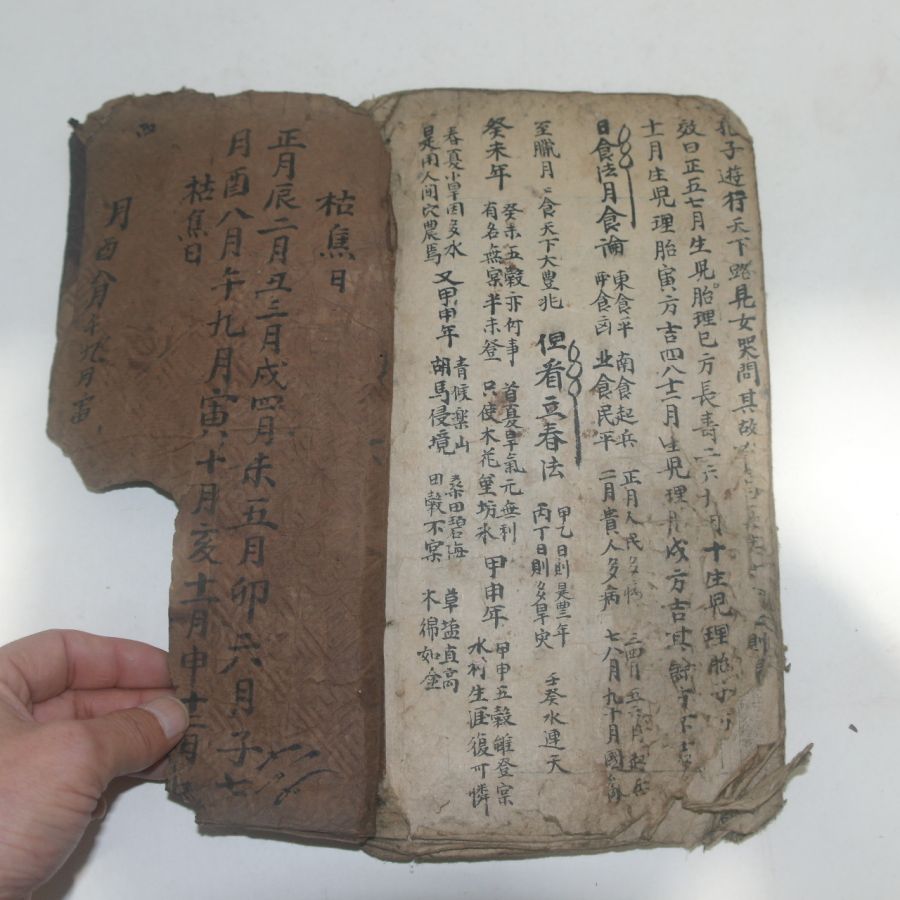 孔子遊行天下路見女哭問其故
效曰正五七月生児胎理巳方長壽二六十月十生児理胎
士月生児理胎寅方吉四八十二月生児理月戌方吉其
日食法月食論 東食平 南食起兵 正月人民多病 三四月五六月起兵
食凶 北食民平 二月貴人多病 七八月九十月國
至臘月日食天下大豊兆 但看立春法 甲乙日則是豊年 丙丁日則多旱灾 壬癸水連天
癸未年 癸未五穀亦何事 有名無実半未登 首夏旱氣元無利 只使木花坊水 甲申年 甲申五穀雖登実 水村生涯復可憐
春夏小旱因多水 是用人間穴農焉 又甲申年 青候楽山 胡馬侵境 桑田碧海 田穀不実 草塩直高 木綿如金
枯焦日
正月辰二月丑三月戌四月未五月卯六月子七
月酉八月午九月寅十月亥十一月申十二月
枯焦日
月酉八月午九月寅